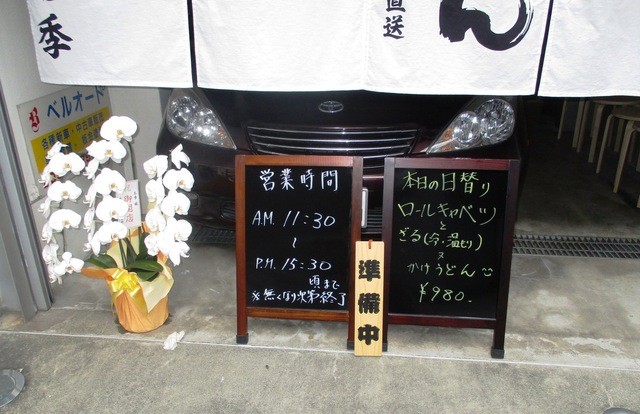 季
直送
ん
ベルオート
営業時間
A.M. 11:30
~
P.M. 15:30
頃まで
※無くなり次第終了
準備中
本日の日替り
ロールキャベツ
と
ざる(冷・温もり)
又
かけうどん
￥980.